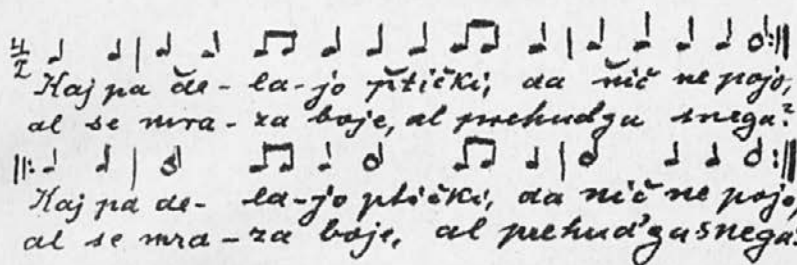 4/2
Kaj pa de-la-jo ptički, da nič ne pojo,
al se mra-za boje, al prehudga snega?
Kaj pa de-la-jo ptički, da nič ne pojo,
al se mra-za boje, al prehud'ga snega.